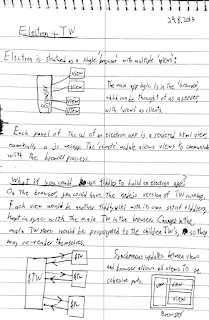 29.8.2015
Electron + TW
Electron is structured as a single browser with multiple views:
Browser
View
View
View
View
The main app logic is in the 'browser',
which can be thought of as a server,
with 'views' as clients.
Each panel of the UI of an electron app is a rendered html view,
essentially a js webpage. The 'remote' module allows views to communicate
with the browser process.
What if you could use tiddlers to build an electron app?
On the browser, you could have the nodejs version of TW running.
Each view would be another tiddlywiki with its own set of tiddlers,
kept in sync with the main TW in the browser. Changes in the
main TW store would be propagated to the children TW's, so they
may re-render themselves.
BTW
Synchronous updates between views
and browser allows all views to be
cohesive parts.
view
view
view
Browser